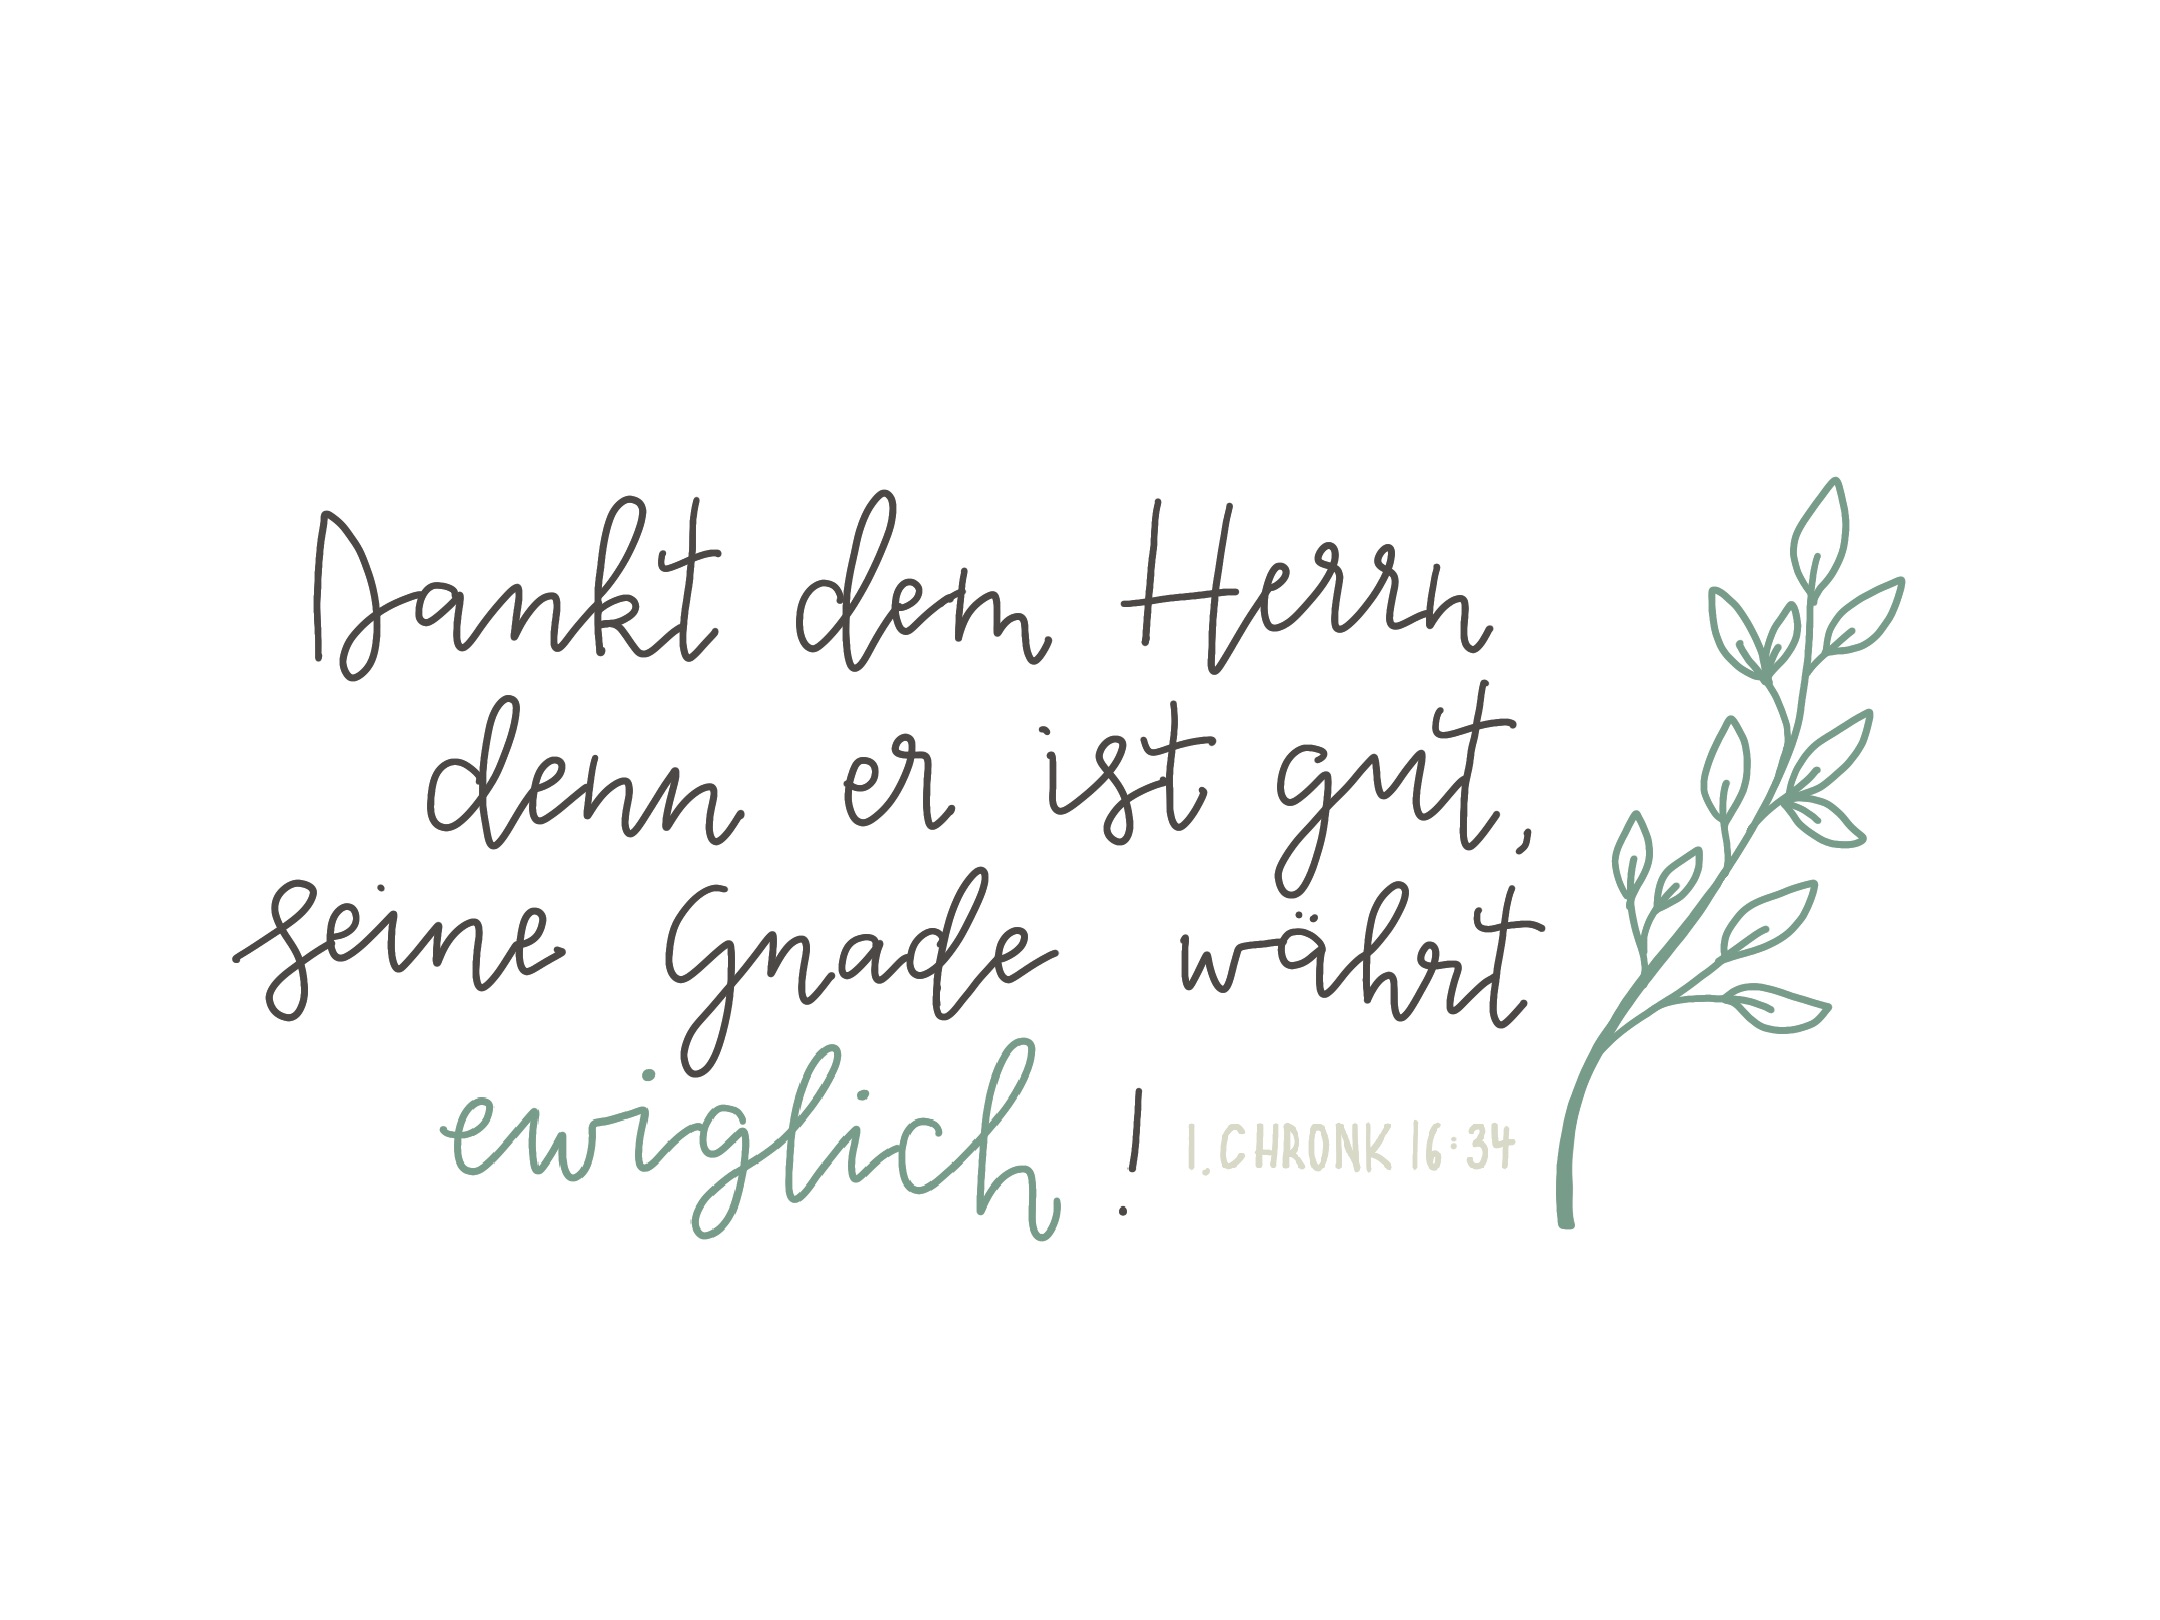 Dankt dem Herrn
denn er ist gut,
Seine Gnade währt
ewiglich! 1. CHRONK 16:34